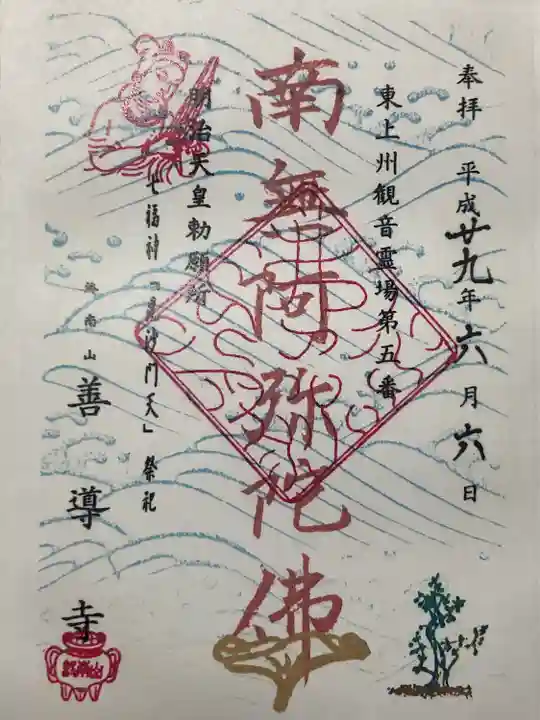 奉拝 平成廿九年六月六日
東上州観音霊場第五番
南無阿弥陀佛
明治天皇勅願所
七福神「毘沙門天」祭祀
終南山 善導寺